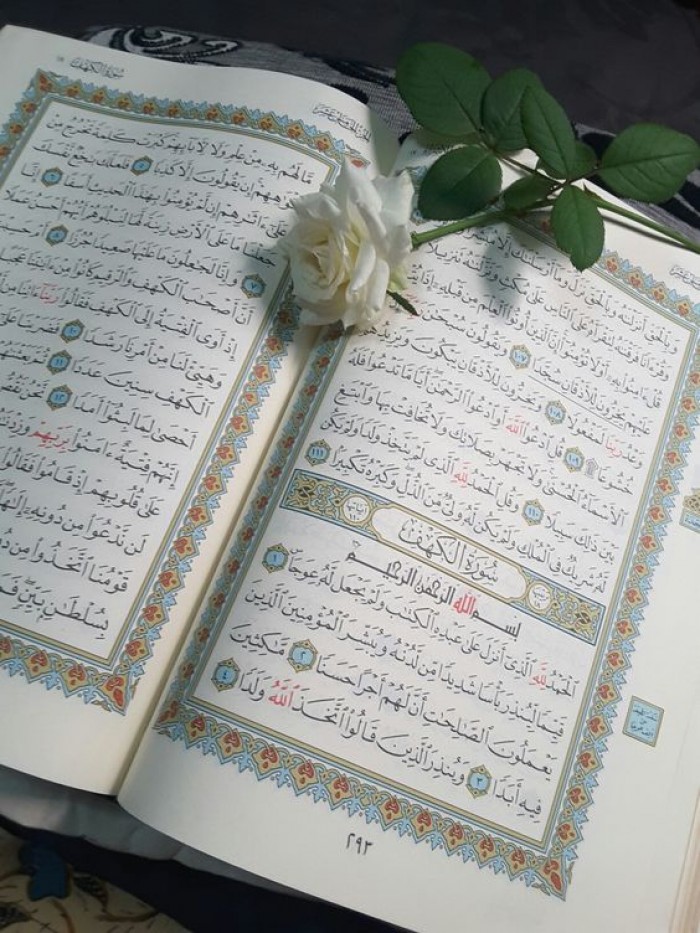 وَبِٱلْحَقِّ أَنزَلْنَٰهُ وَبِٱلْحَقِّ نَزَلَ وَمَآ أَرْسَلْنَٰكَ إِلَّا
وَقُرْءَانًا فَرَقْنَٰهُ لِتَقْرَأَهُۥ عَلَى ٱلنَّاسِ عَلَىٰ مُكْثٍ وَنَزَّلْنَٰهُ تَنزِيلًا
قُلْ ءَامِنُوا۟ بِهِۦٓ أَوْ لَا تُؤْمِنُوٓا۟ إِنَّ ٱلَّذِينَ أُوتُوا۟ ٱلْعِلْمَ مِن قَبْلِهِۦٓ إِذَا
عَلَيْهِمْ يَخِرُّونَ لِلْأَذْقَانِ سُجَّدًا ١٠٧ وَيَقُولُونَ سُبْحَٰنَ
وَعْدُ رَبِّنَا لَمَفْعُولًا ١٠٨ وَيَخِرُّونَ لِلْأَذْقَانِ يَبْكُونَ وَيَزِيدُهُمْ
خُشُوعًا ۩ ١٠٩ قُلِ ٱدْعُوا۟ ٱللَّهَ أَوِ ٱدْعُوا۟ ٱلرَّحْمَٰنَ أَيًّا مَّا تَدْعُوا۟ فَلَهُ
ٱلْأَسْمَآءُ ٱلْحُسْنَىٰ وَلَا تَجْهَرْ بِصَلَاتِكَ وَلَا تُخَافِتْ بِهَا وَٱبْتَغِ
بَيْنَ ذَٰلِكَ سَبِيلًا ١١٠ وَقُلِ ٱلْحَمْدُ لِلَّهِ ٱلَّذِى لَمْ يَتَّخِذْ وَلَدًا وَلَمْ يَكُن
لَّهُۥ شَرِيكٌ فِى ٱلْمُلْكِ وَلَمْ يَكُن لَّهُۥ وَلِىٌّ مِّنَ ٱلذُّلِّ وَكَبِّرْهُ تَكْبِيرًۢا ١١١
سُورَةُ ٱلْكَهْفِ
بِسْمِ ٱللَّهِ ٱلرَّحْمَٰنِ ٱلرَّحِيمِ
ٱلْحَمْدُ لِلَّهِ ٱلَّذِىٓ أَنزَلَ عَلَىٰ عَبْدِهِ ٱلْكِتَٰبَ وَلَمْ يَجْعَل لَّهُۥ عِوَجَا ١
قَيِّمًا لِّيُنذِرَ بَأْسًا شَدِيدًا مِّن لَّدُنْهُ وَيُبَشِّرَ ٱلْمُؤْمِنِينَ ٱلَّذِينَ
يَعْمَلُونَ ٱلصَّٰلِحَٰتِ أَنَّ لَهُمْ أَجْرًا حَسَنًا ٢ مَّٰكِثِينَ
فِيهِ أَبَدًا ٣ وَيُنذِرَ ٱلَّذِينَ قَالُوا۟ ٱتَّخَذَ ٱللَّهُ وَلَدًا ٤
٢٩٣
سُورَةُ ٱلْكَهْفِ
مَّا لَهُم بِهِۦ مِنْ عِلْمٍ وَلَا لِـَٔابَآئِهِمْ كَبُرَتْ كَلِمَةً تَخْرُجُ مِنْ
أَفْوَٰهِهِمْ إِن يَقُولُونَ إِلَّا كَذِبًا ٥ فَلَعَلَّكَ بَٰخِعٌ نَّفْسَكَ
عَلَىٰٓ ءَاثَٰرِهِمْ إِن لَّمْ يُؤْمِنُوا۟ بِهَٰذَا ٱلْحَدِيثِ أَسَفًا ٦ إِنَّا
جَعَلْنَا مَا عَلَى ٱلْأَرْضِ زِينَةً لَّهَا لِنَبْلُوَهُمْ أَيُّهُمْ أَحْسَنُ عَمَلًا ٧
وَإِنَّا لَجَٰعِلُونَ مَا عَلَيْهَا صَعِيدًا جُرُزًا ٨ أَمْ حَسِبْتَ
أَنَّ أَصْحَٰبَ ٱلْكَهْفِ وَٱلرَّقِيمِ كَانُوا۟ مِنْ ءَايَٰتِنَا عَجَبًا
إِذْ أَوَى ٱلْفِتْيَةُ إِلَى ٱلْكَهْفِ فَقَالُوا۟ رَبَّنَآ ءَاتِنَا مِن
وَهَيِّئْ لَنَا مِنْ أَمْرِنَا رَشَدًا ١٠ فَضَرَبْنَا عَلَىٰٓ
ٱلْكَهْفِ سِنِينَ عَدَدًا ١١ ثُمَّ بَعَثْنَٰهُمْ
أَحْصَىٰ لِمَا لَبِثُوٓا۟ أَمَدًا ١٢ نَّحْنُ نَقُصُّ
إِنَّهُمْ فِتْيَةٌ ءَامَنُوا۟ بِرَبِّهِمْ وَزِدْنَٰهُمْ
عَلَىٰ قُلُوبِهِمْ إِذْ قَامُوا۟ فَقَالُوا۟
لَن نَّدْعُوَا۟ مِن دُونِهِۦٓ إِلَٰهًا
قَوْمُنَا ٱتَّخَذُوا۟ مِن
بِسُلْطَٰنٍۭ بَيِّنٍ